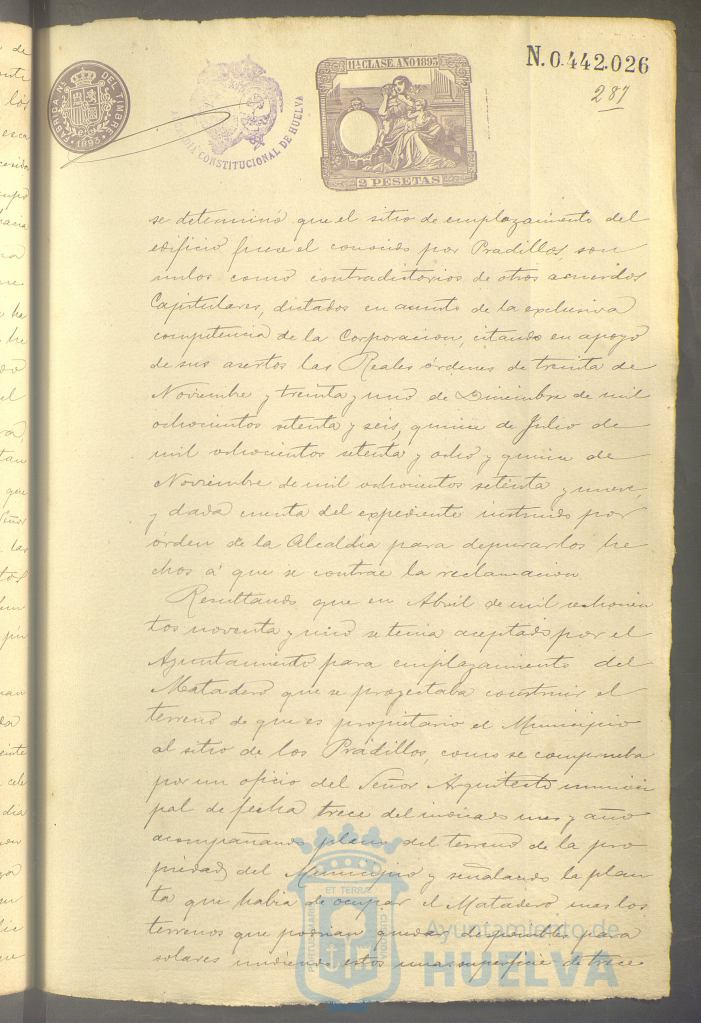 N.0.442.026
287
FABRICA NL. DEL TIMBRE
1893
ALCALDIA CONSTITUCIONAL DE HUELVA
11ª CLASE AÑO 1893
2 PESETAS
se determinó que el sitio de emplazamiento del
edificio fuese el conocido por Pradillos, son
nulos como contradictorios de otros acuerdos
Capitulares, dictados en asunto de la exclusiva
competencia de la Corporacion, citando en apoyo
de sus asertos las Reales órdenes de treinta de
Noviembre y treinta y uno de Diciembre de mil
ochocientos setenta y seis, quince de Julio de
mil ochocientos setenta y ocho y quince de
Noviembre de mil ochocientos setenta y nueve,
y dada cuenta del expediente instruido por
órden de la Alcaldia para depurar los he
chos á que se contrae la reclamacion.
Resultando que en Abril de mil ochocien
tos noventa y uno se tenia aceptado por el
Ayuntamiento para emplazamiento del
Matadero que se proyectaba construir el
terreno de que es propietario el Municipio
al sitio de los Pradillos, como se comprueba
por un oficio del Señor Arquitecto munici
pal de fecha trece del mismo mes y año
acompañando plano del terreno de la pro
piedad del Municipio y señalando la plan
ta que habia de ocupar el Matadero mas los
terrenos que podrian quedar disponibles para
solares midiendo estos una superficie de trece
ET TERRAE
PORTUS MARIS
CUSTODIA
Ayuntamiento de
HUELVA